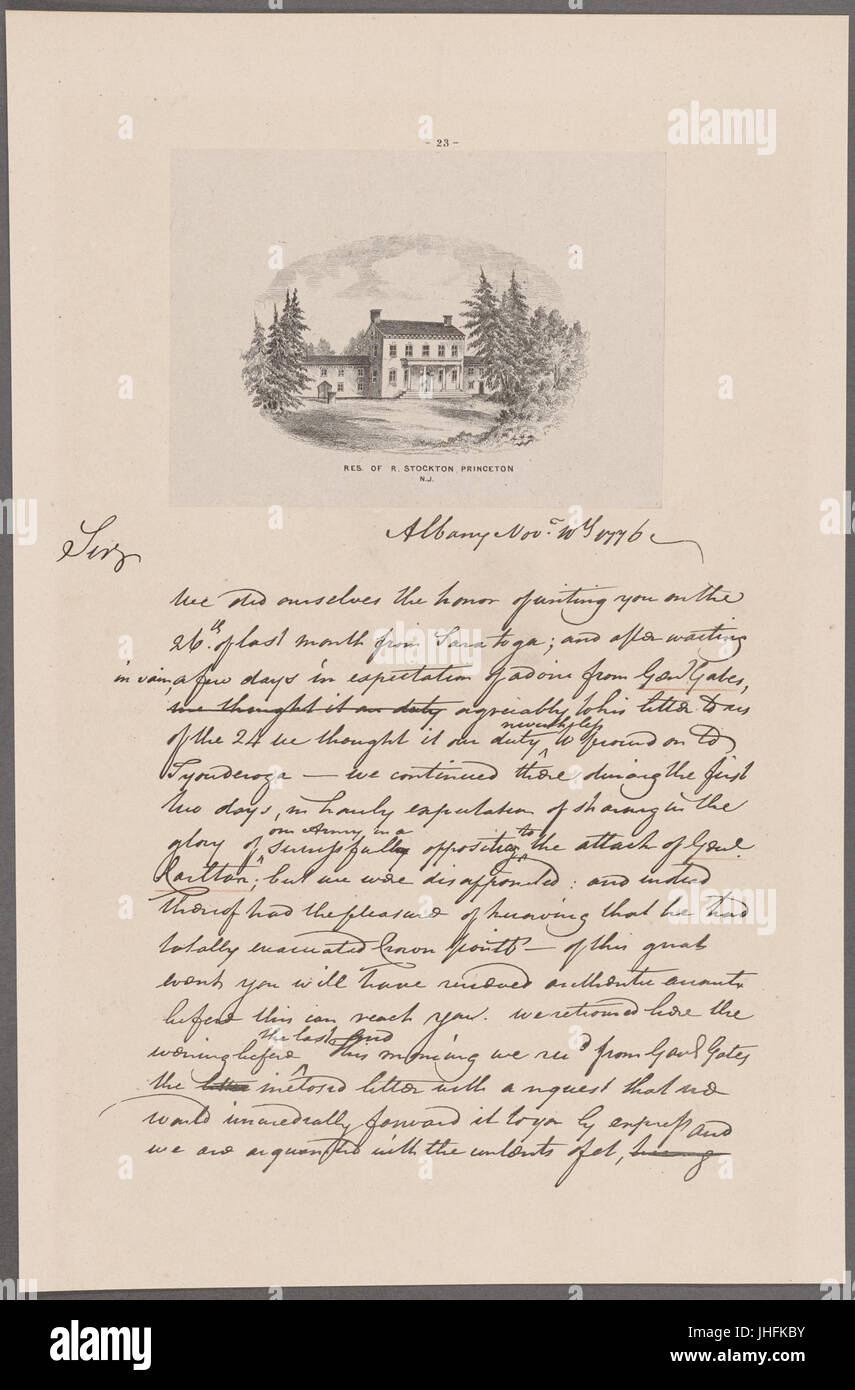 - 23 -
RES. OF R. STOCKTON PRINCETON
N.J.
Albany Novr. 10th 1776
Sir,
We did ourselves the honor of writing you on the
26th. of last month from Saratoga; and after waiting
in vain, a few days in expectation of advice from Genl Gates,
we thought it our duty agreeably to his letter to us
nevertheless
of the 24 we thought it our duty to proceed on to
Tyonderoga — we continued there, during the first
two days, in hourly expectation of sharing in the
our Army in a to
glory of successful opposition the attack of Genl.
Carlton; but we were disappointed: and indeed
thereof had the pleasure of knowing that he had
totally evacuated Crown point — of this great
event you will have received authentic accounts
before this can reach you. we returned here the
the last and
evening before This morning we recd from Genl Gates
the letter inclosed letter with a request that we
would immediately forward it to you by express and
we are acquainted with the contents of it,
alamy
alamy stock photo
JHFKBY
www.alamy.com